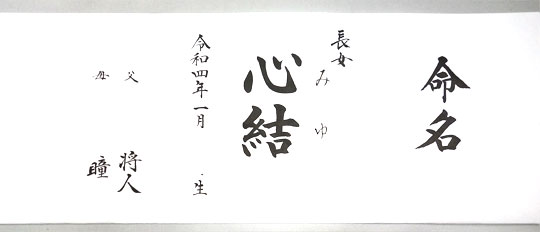 命名
長女
みゆ
心結
令和四年一月 生
父 将人
母 瞳